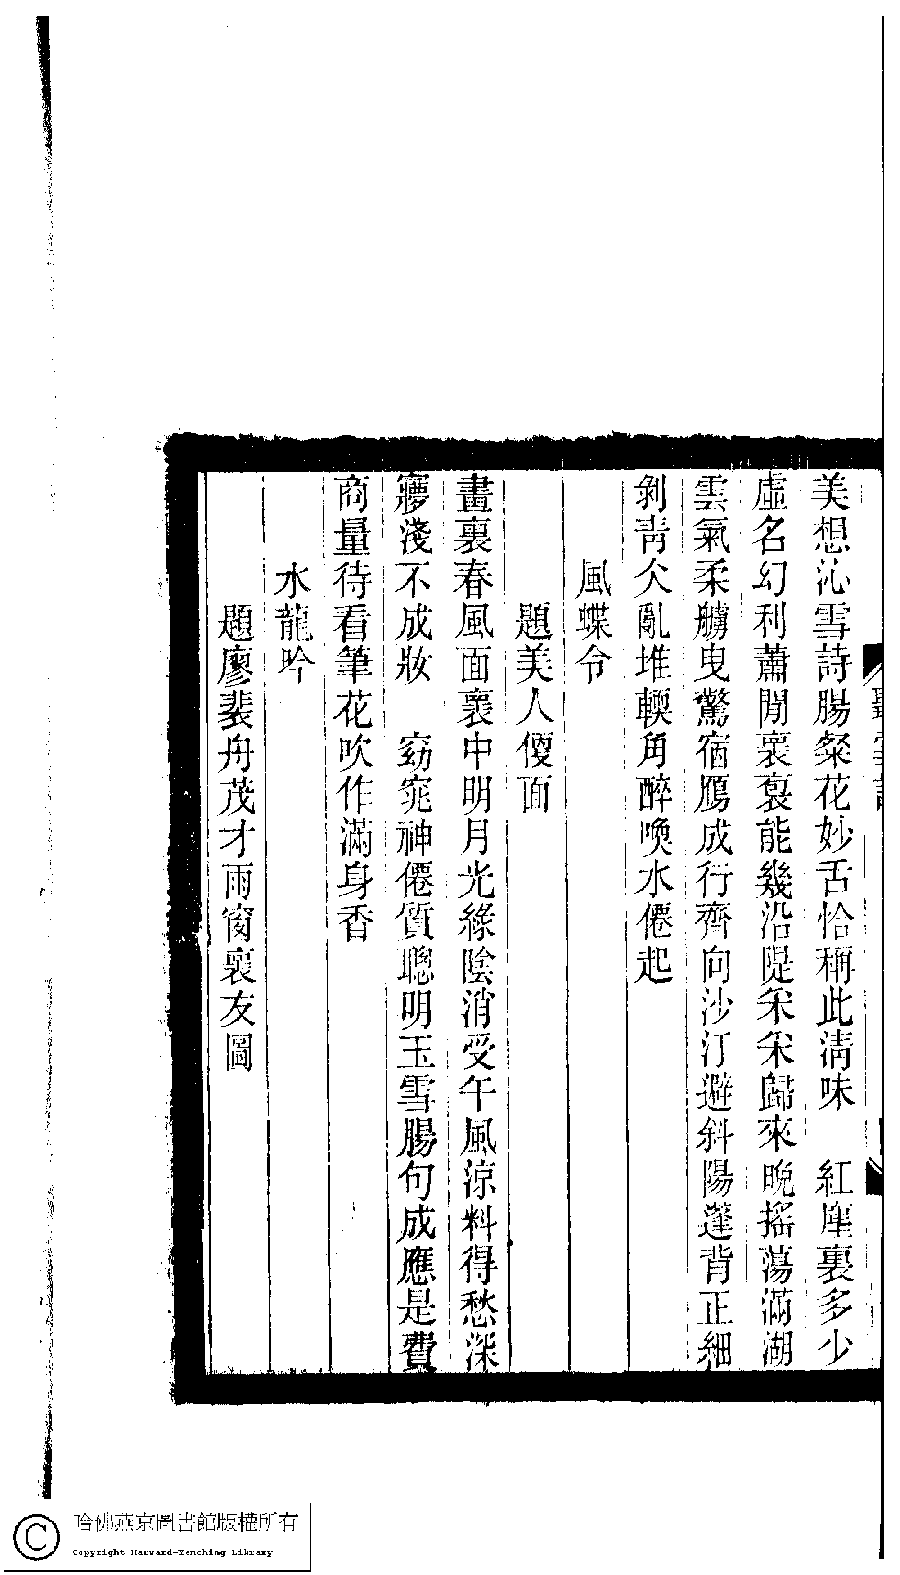 美想沁雪詩腸粲花妙舌恰稱此淸味　紅塵裏多少
虛名幻利蕭閒裏裊能幾沿隄朵朵歸來晚搖蕩滿湖
雲氣柔艣曳驚宿鴈成行齊向沙汀避斜陽蓬背正細
剝靑尖亂堆輭角醉喚水僊起
風蝶令
題美人便面
畫裏春風面裏中明月光綠陰消受午風涼料得愁深
㝱淺不成妝　窈窕神僊質聰明玉雪腸句成應是費
商量待看筆花吹作滿身香
水龍吟
題廖裴舟茂才雨窗裏友圖
哈佛燕京圖書館版權所有
Copyright Harvard-Yenching Library